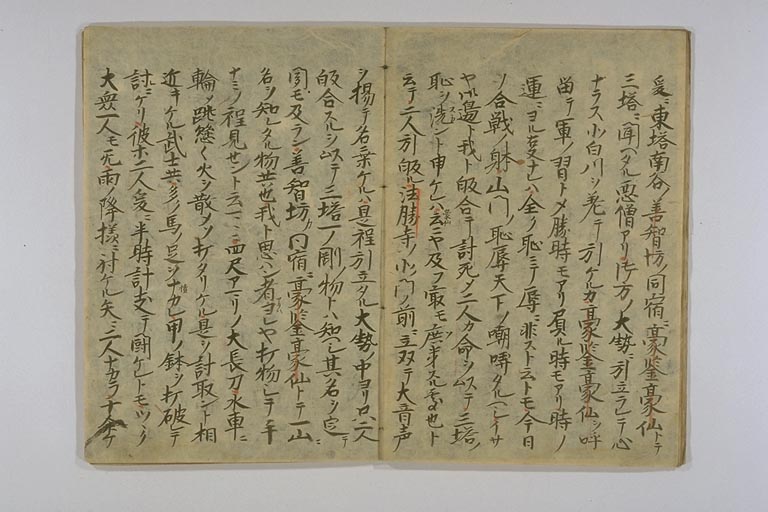 爰ニ東塔南谷ノ善智坊ノ同宿ニ豪鑒豪仙トテ
三塔ニ聞ヘタル悪僧アリ御方ノ大勢ニ引立ラレテ心
ナラス北白川ヲ差テ引ケルカ豪鑒豪仙ヲ呼
留テ軍ノ習トメ勝時モアリ負ル時モアリ時ノ
運ニヨル事ナレハ全ク恥ニテ辱ニ非スト云トモ今日
ノ合戦ノ躰山門ノ恥辱天下ノ嘲哢タルヘシイサ
ヤ御邊我ト皈合テ討死メ二人カ命ヲステ三塔ノ
恥ヲ洗ント申ケレハ豪仙云ニヤ及フ最モ庶幾スル所也ト
云テ二人引皈ル法勝寺ノ小門ノ前ニ立双テ大音声
ヲ揚テ名乗ケルハ是程引立タル大勢ノ中ヨリ只二人
皈合スルヲ以テ三塔一ノ剛ノ物トハ知ヘシ其名ヲ定テ
聞モ及ラン善智坊カ同宿ニ豪鑒豪仙トテ一山ニ
名ヲ知レタル物共也我ト思ハン者ヨレヤ打物シテ自
ナミノ程見セント云マヽニ四尺アマリノ大長刀水車ニ
輪ヲ跳懸々火ヲ散テソ打タリケル是ヲ討取ント相
近キケル武士共多ク馬ノ足ヲナカレ甲ノ鉢ヲ打破テ
討ニケリ彼ホ二人爰ニ半時計支テ闘ケレトモツヽク
大衆一人モ无雨ノ降様ニ射ケル矢ニ二人ナカラ十余ケ